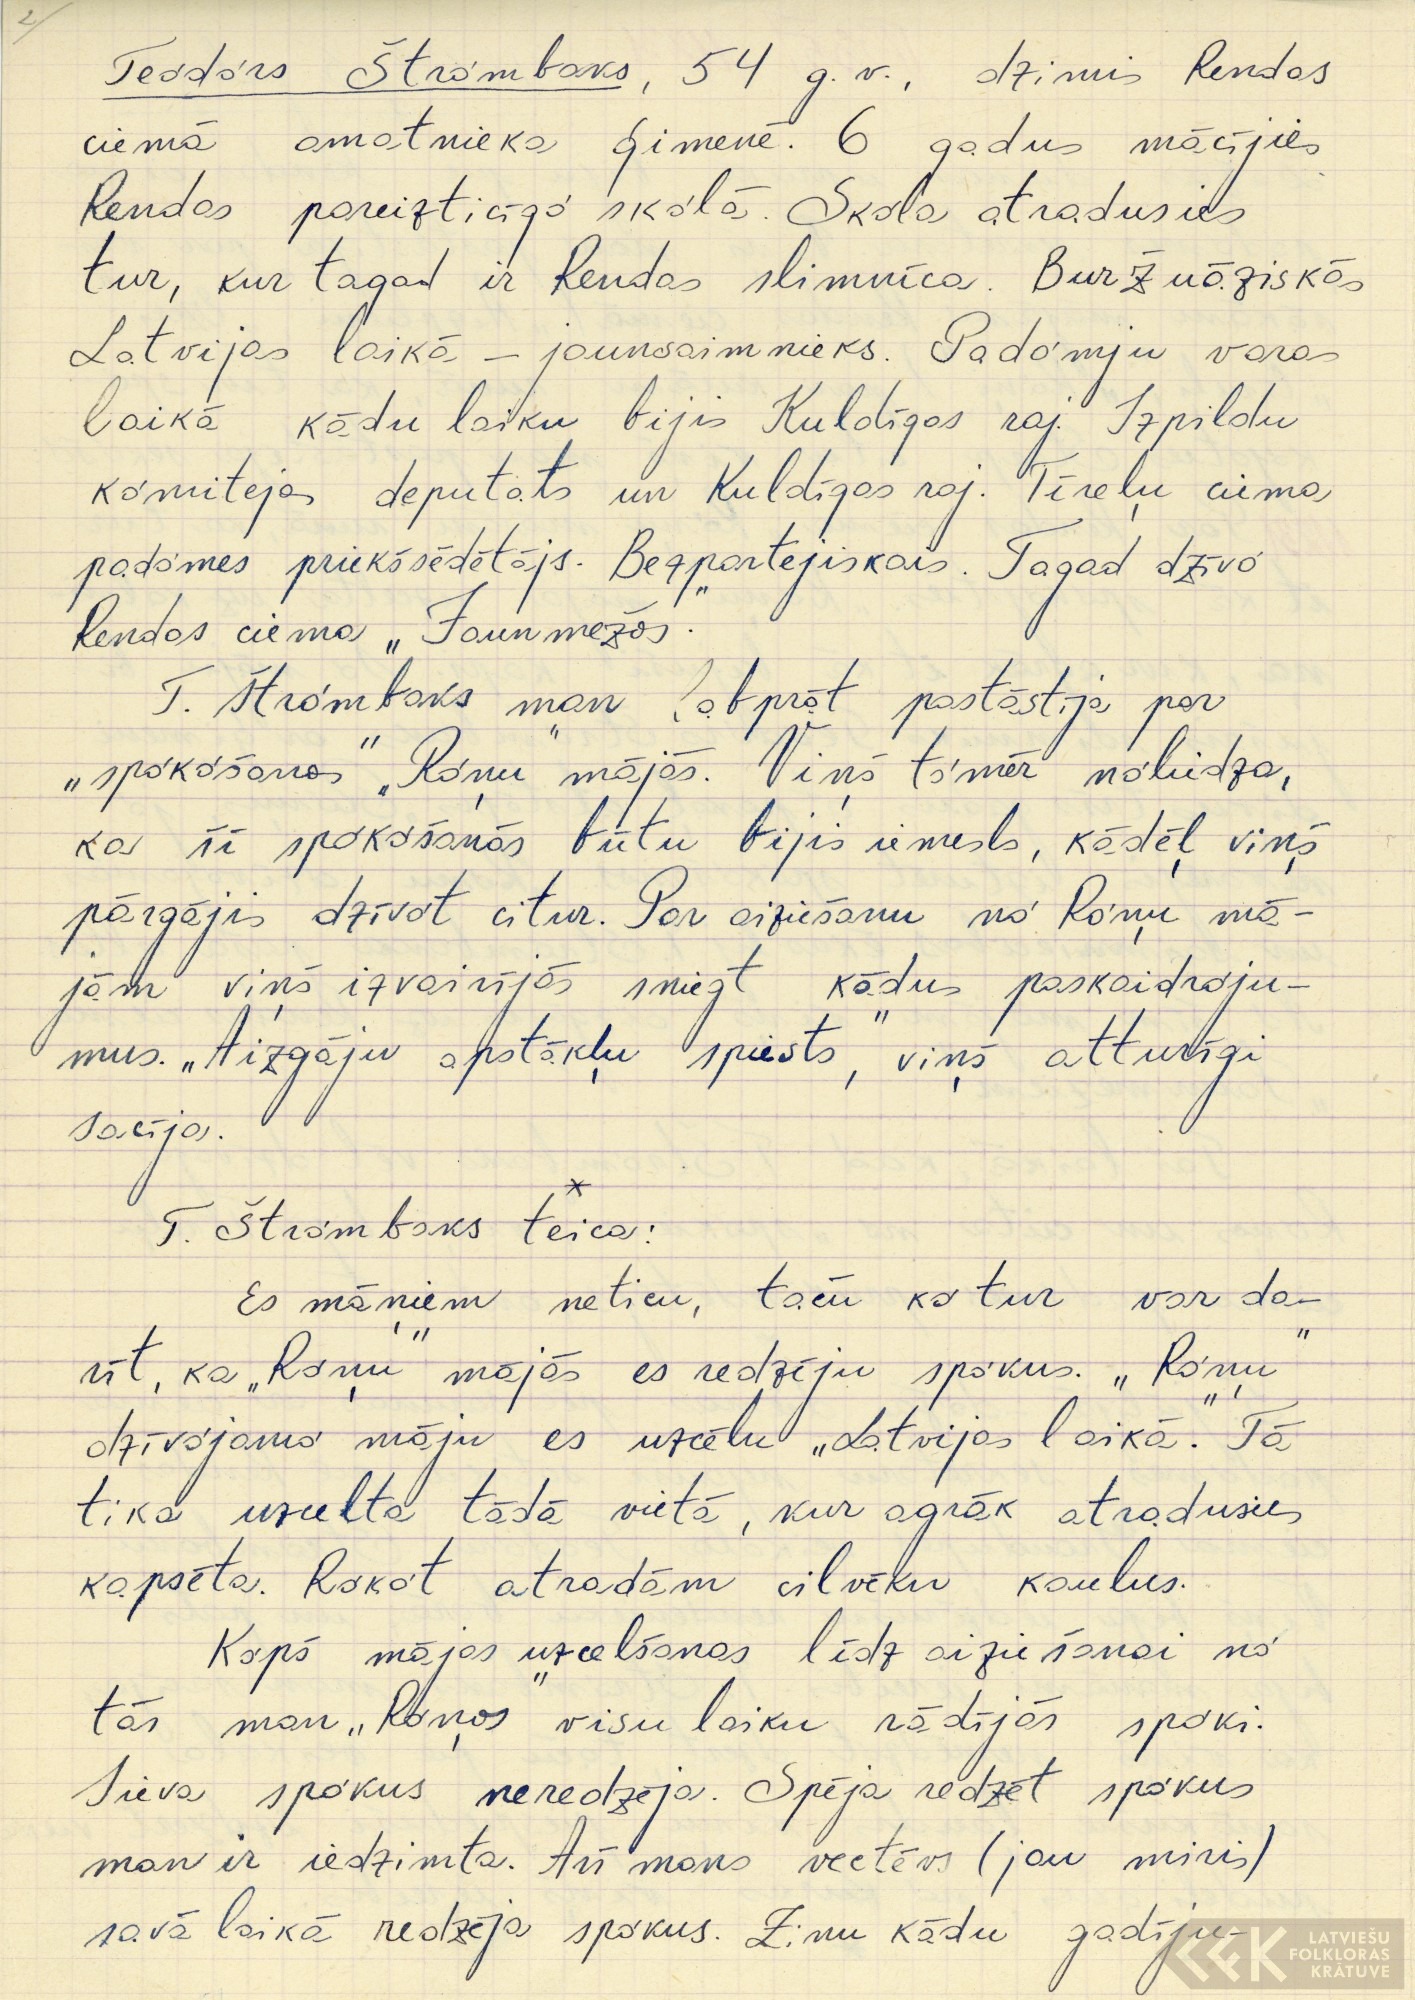 2/
Teodors Štrombaks, 54 g.v., dzimis Rendas
ciemā amatnieka ģimenē. 6 gadus mācījies
Rendas pareizticīgo skolā. Skola atradusies
tur, kur tagad ir Rendas slimnīca. Buržuāziskās
Latvijas laikā – jaunsaimnieks. Padomju varas
laikā kādu laiku bijis Kuldīgas raj. Izpildu
komitejas deputāts un Kuldīgas raj. Tīreļu ciema
padomes priekšsēdētājs. Bezpartejiskais. Tagad dzīvo
Rendas ciema „Jaunmežos".
T. Štrombaks man labprāt pastāstīja par
„spokošanos" „Roņu" mājās. Viņš tomēr noliedza,
ka šī spokošanās būtu bijis iemesls, kādēļ viņš
pārgājis dzīvot citur. Par aiziešanu no Roņu mā-
jām viņš izvairījās sniegt kādus paskaidroju-
mus. „Aizgāju apstākļu spiests", viņš atturīgi
sacīja.
*
T. Štrombaks teica:
Es māņiem neticu, taču ko tur var da-
rīt, ka „Roņu" mājās es redzēju spokus. „Roņu"
dzīvojamo māju es uzcēlu „Latvijas laikā". Tā
tika uzcelta tādā vietā, kur agrāk atradusies
kapsēta. Rokot atradām cilvēku kaulus.
Kopš mājas uzcelšanas līdz aiziešanai no
tās man „Roņos" visu laiku rādījās spoki.
Sieva spokus neredzēja. Spēja redzēt spokus
man ir iedzimta. Arī mans vectēvs (jau miris)
savā laikā redzēja spokus. Zinu kādu gadīju-
LATVIEŠU
FOLKLORAS
KRĀTUVE